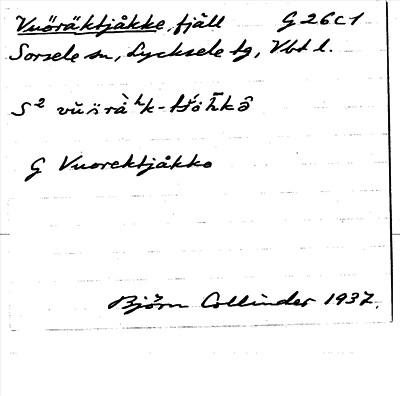 Vuöräktjåkke, fjäll G 26 C 1
Sorsele sn, Lycksele tg, Vbt l.
G Vuorektjåkko
Björn Collinder 1937.